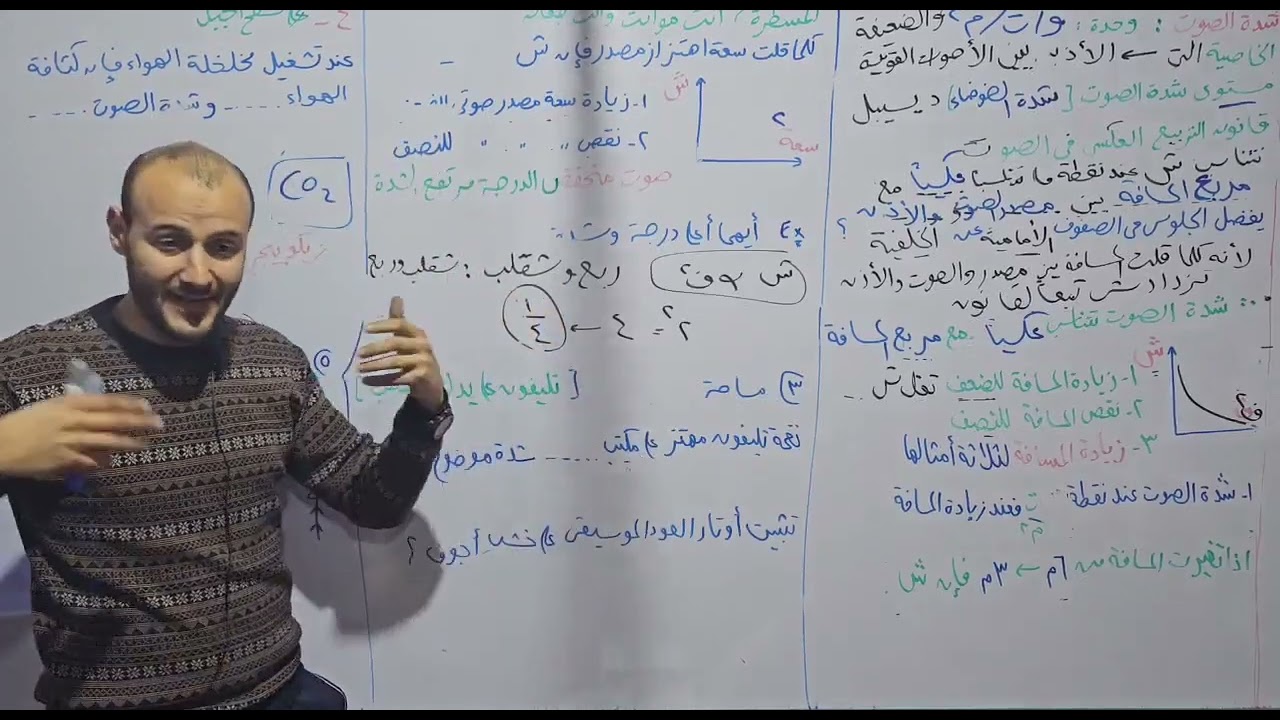 شدة الصوت : وحدة : وات/م٢ والضعيفة
الخاصية التى ← الأذن بين الأصوات القوية
مستوى شدة الصوت [شدة الضوضاء] ديسيبل
قانون التربيع العكسى فى الصوت
تتناسب ش عند نقطة ما تناسبا عكسيا مع
مربع المسافة بين مصدر الصوت والأذن
يفضل الجلوس فى الصفوف الأمامية عن الخلفية ؟
لأنه كلما قلت المسافة بين مصدر الصوت والأذن
تزداد ش تبعا لقانون
شدة الصوت تتناسب عكسيا مع مربع المسافة
ش
ف٢
١- زيادة المسافة للضعف تقل ش
٢- نقص المسافة للنصف
٣- زيادة المسافة لثلاثة أمثالها
١- شدة الصوت عند نقطة ت فعند زيادة المسافة
اذا تغيرت المسافة من ٦م ← ٣م فإن ش
كلما قلت سعة اهتزاز مصدر فإن ش
١- زيادة سعة مصدر صوتى
٢- نقص " " " للنصف
ش
٢
سعة
صوت منخفض الدرجة مرتفع الشدة
٤ أيهما أعلى درجة
ش ∝ ف٢
ربع وشقلب : شقلب وربع
٢٢ = ٤ ← ١/٤
٣) مساحة [تليفون على يد
نغمة تليفون مهتز على مكتب ...... شدة موضوع
تثبيت أوتار العود الموسيقى على خشب أجوف ؟
عند تشغيل مخلخلة الهواء فإن كثافة
الهواء ..... وشدة الصوت .....
CO2